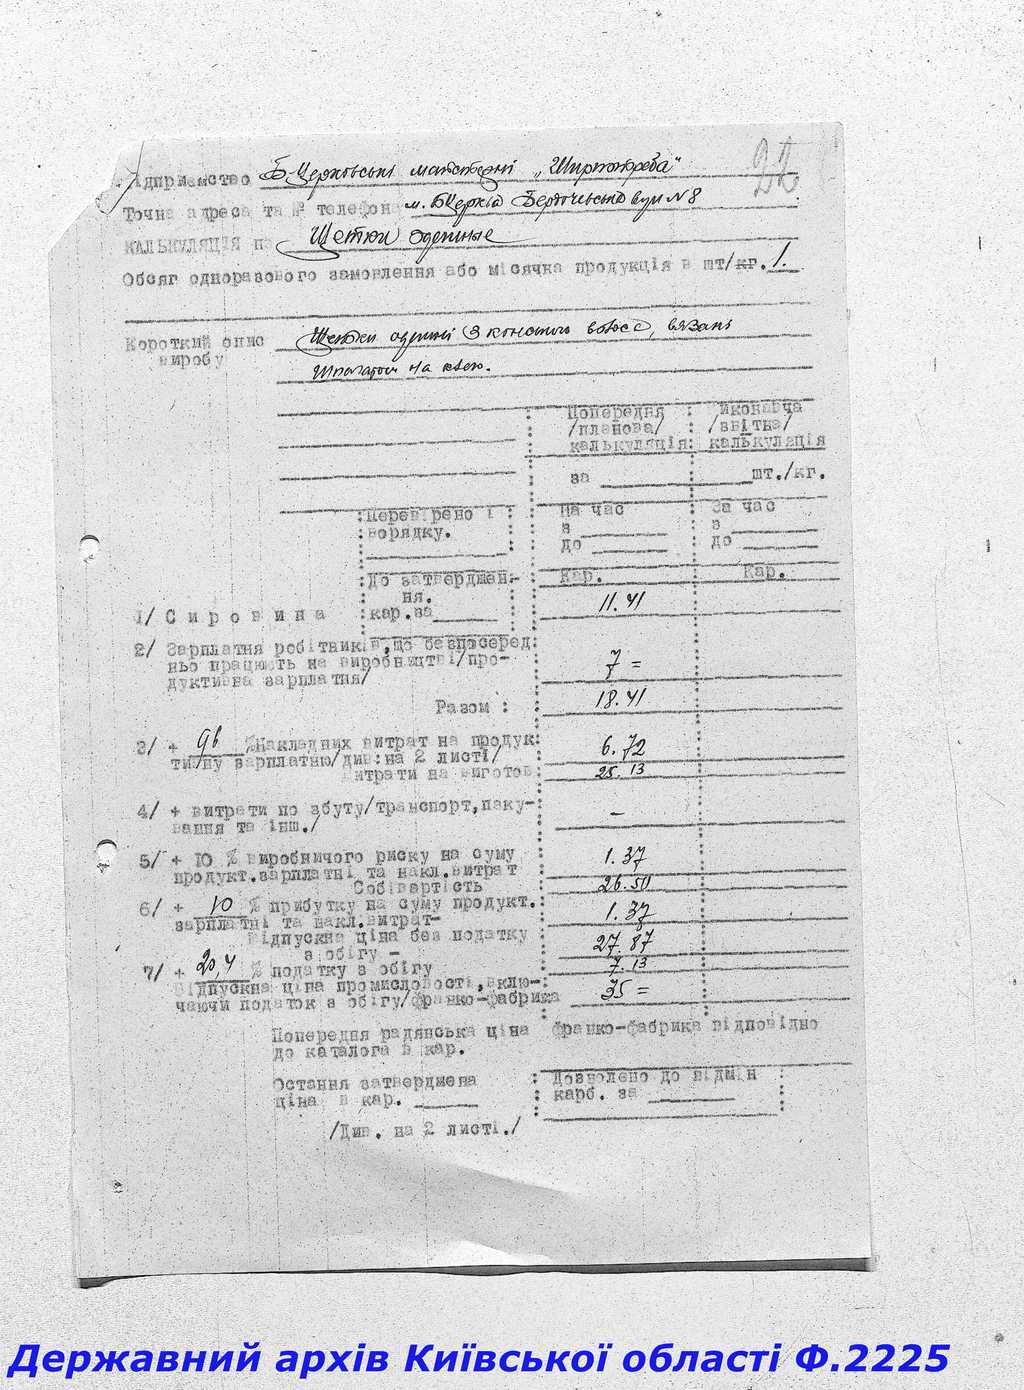 22
Підприємство Б-Церковські майстерні „Ширпотреба"
Точна адреса та № телефона м. БЦерква Бердичівська вул № 8
КАЛЬКУЛЯЦІЯ на Щетки одежные
Обсяг одноразового замовлення або місячна продукція в шт/кг. 1.
Короткий опис Щетки одежні з конського волосс, вязані
виробу шпагатом на клею.
Попередня : Виконавча
/планова/ : /звітна/
калькуляція: калькуляція
за шт./кг.
:Перевірено і : На час За час
:порядку. з з
до до
:До затверджен- Кар. Кар.
ня.
1/ Сировина кар.за 11.41
2/ Зарплатня робітників,що безпосеред:
ньо працюють на виробництві/про- 7 =
дуктивна зарплатня/
Разом : 18.41
3/ + 96 %Накладних витрат на продук: 6.72
тивну зарплатню/див:на 2 листі/
Витрати на виготов: 25.13
4/ + витрати по збуту/транспорт,паку-: –
вання та інш./
5/ + 10 % виробничого риску на суму 1.37
продукт.зарплатні та накл.витрат
Собівартість 26.50
6/ + 10 % прибутку на суму продукт.: 1.37
зарплатні та накл.витрат-
Відпускна ціна без податку 27.87
з обігу -
7/ + 20,4 % податку з обігу 7.13
Відпускна ціна промисловості,вклю-: 35 =
чаючи податок з обігу/франко-фабрика
Попередня радянська ціна франко-фабрика відповідно
до каталога в кар.
Остання затверджена : Дозволено до відмін :
ціна в кар. : карб. за :
/Див. на 2 листі./
Державний архів Київської області Ф.2225